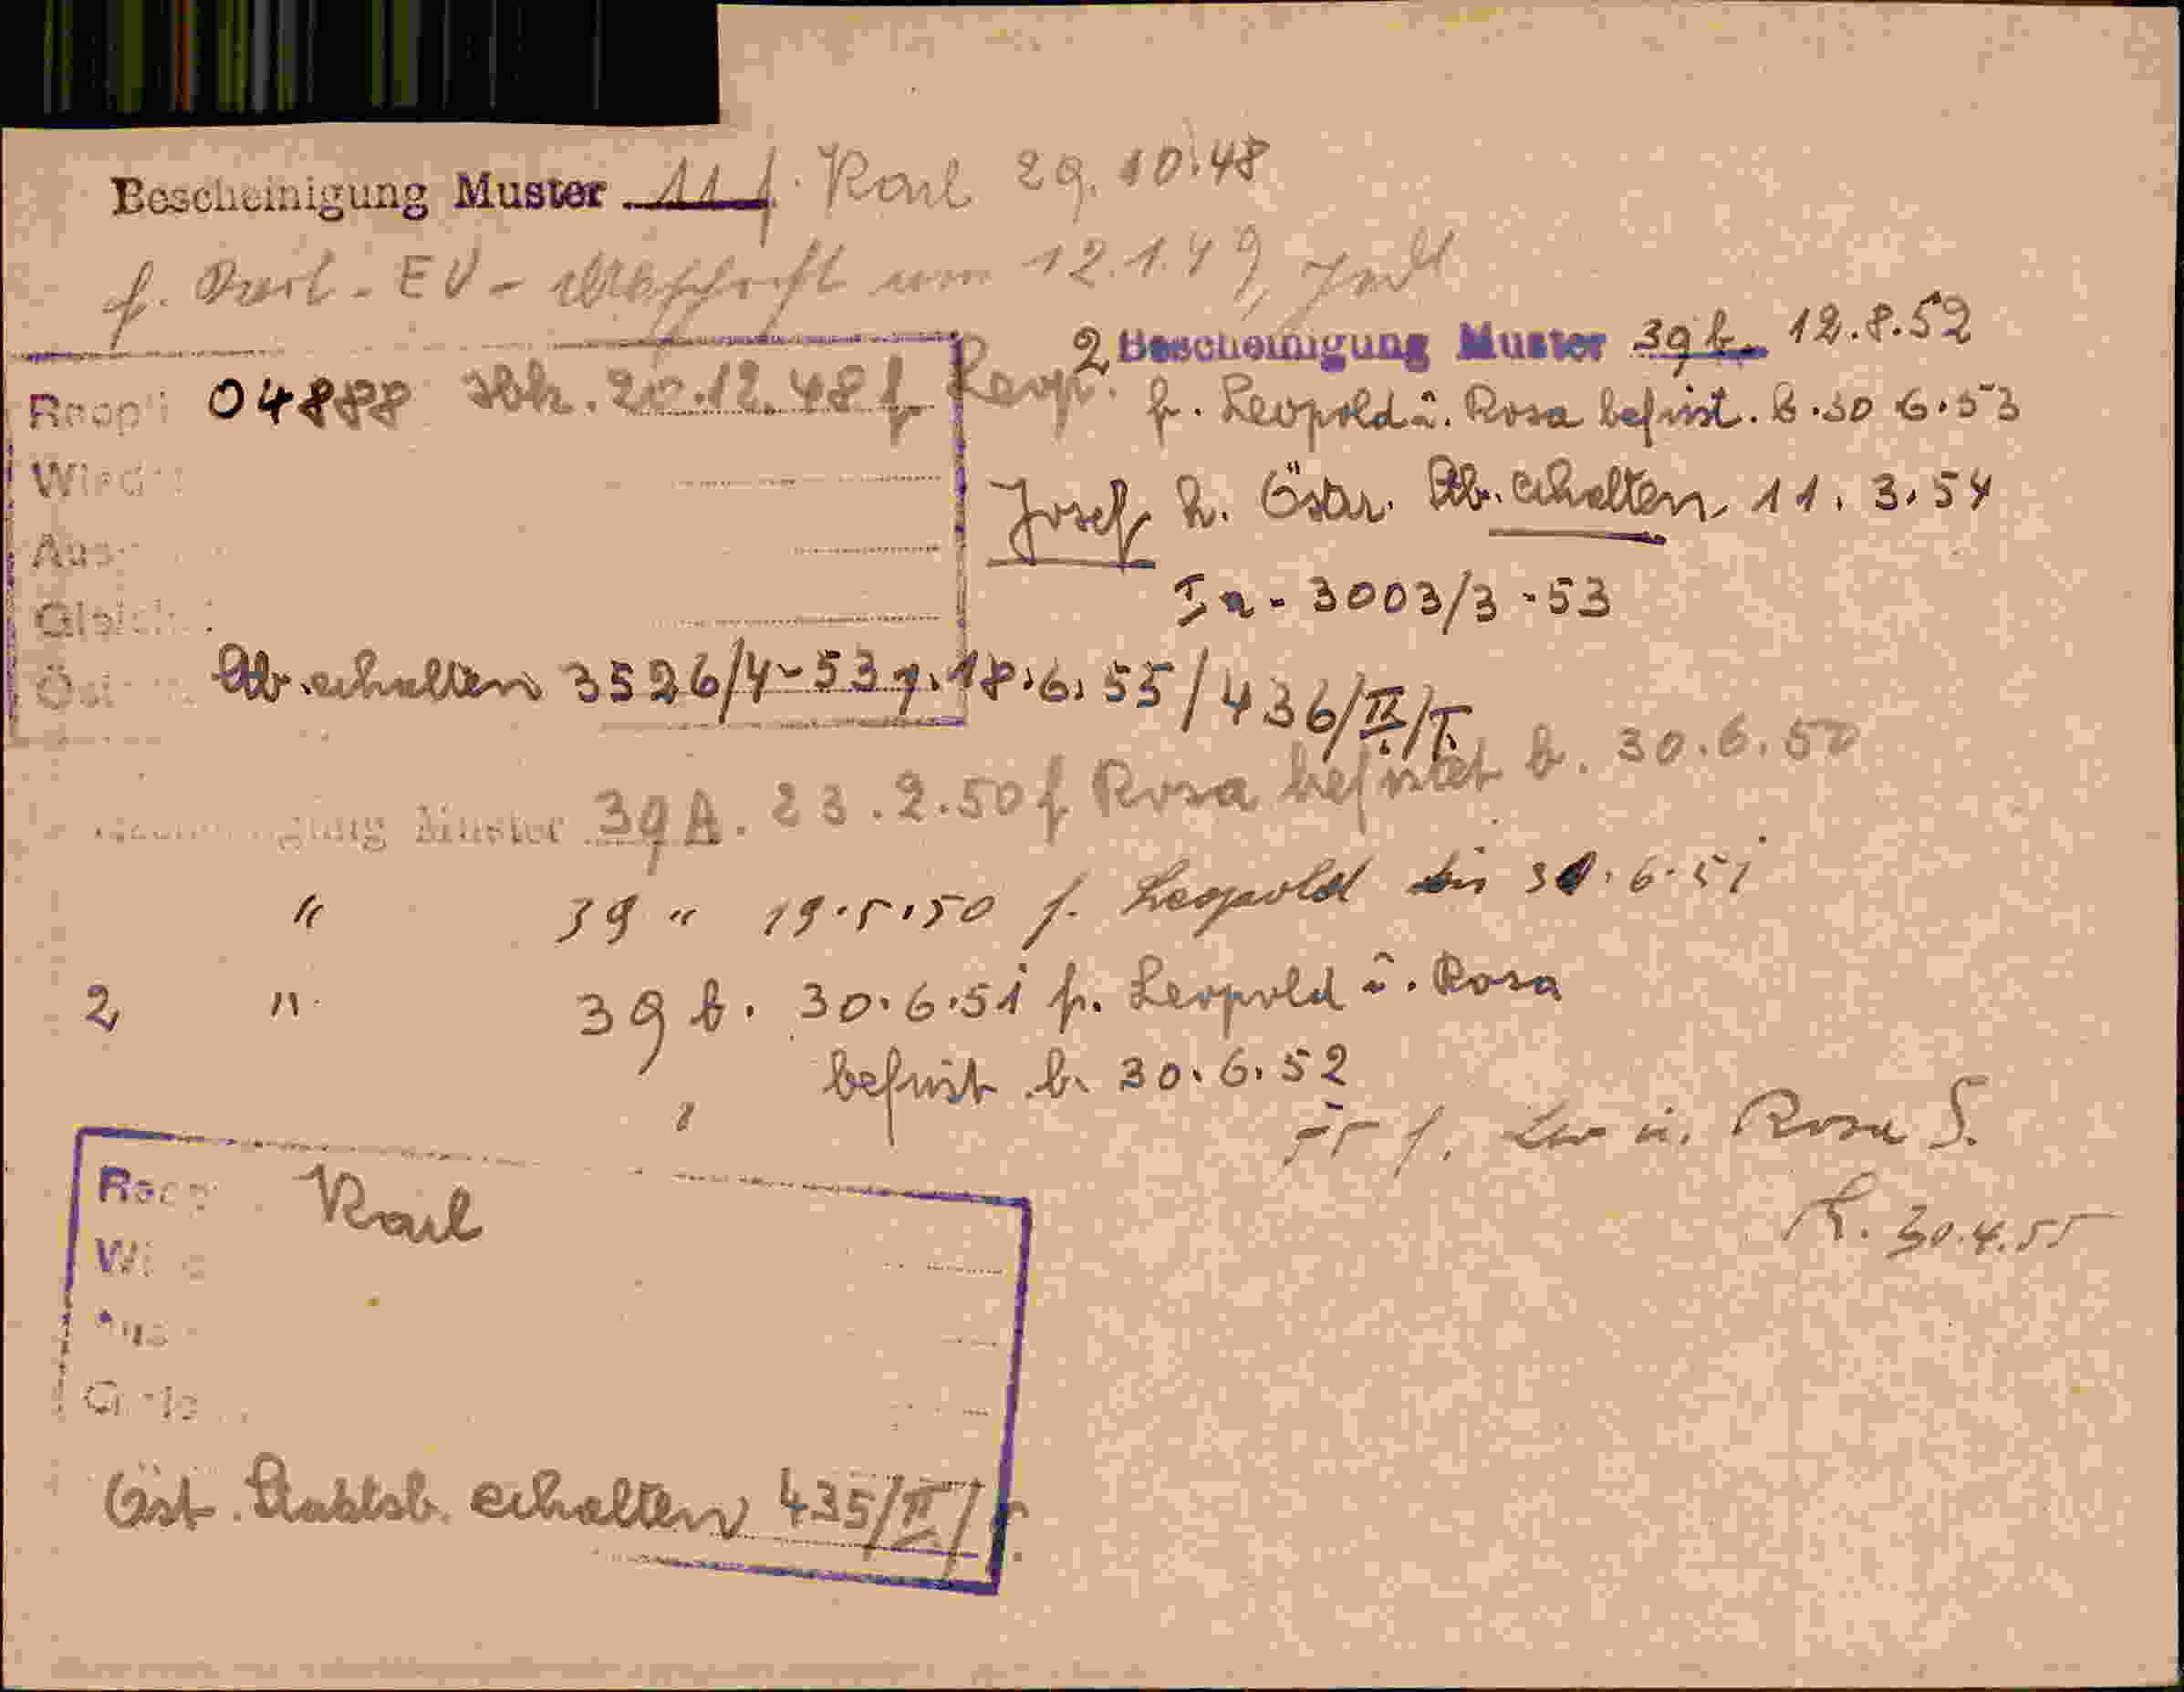 Bescheinigung Muster 11 f. Karl 29.10.48
f. Karl - EV - 12.1.49,
2 Bescheinigung Muster 39 b. 12.8.52
04888 20.12.48 f. Leop.
f. Leopold u. Rosa befrist. b. 30.6.53
Josef h. Östr. Stb. erhalten 11.3.54
Ia - 3003/3-53
Stb. erhalten 3526/4-53 18.6.55/436/II/T.
Bescheinigung Muster 39 A. 23.2.50 f Rosa befristet b. 30.6.50
" 39 " 19.5.50 f. Leopold bis 30.6.51
2 " 39 b. 30.6.51 f. Leopold u. Rosa
befrist b. 30.6.52
f. Leo u. Rosa S.
30.4.55
Karl
Öst. Staatsb. erhalten 435/II/